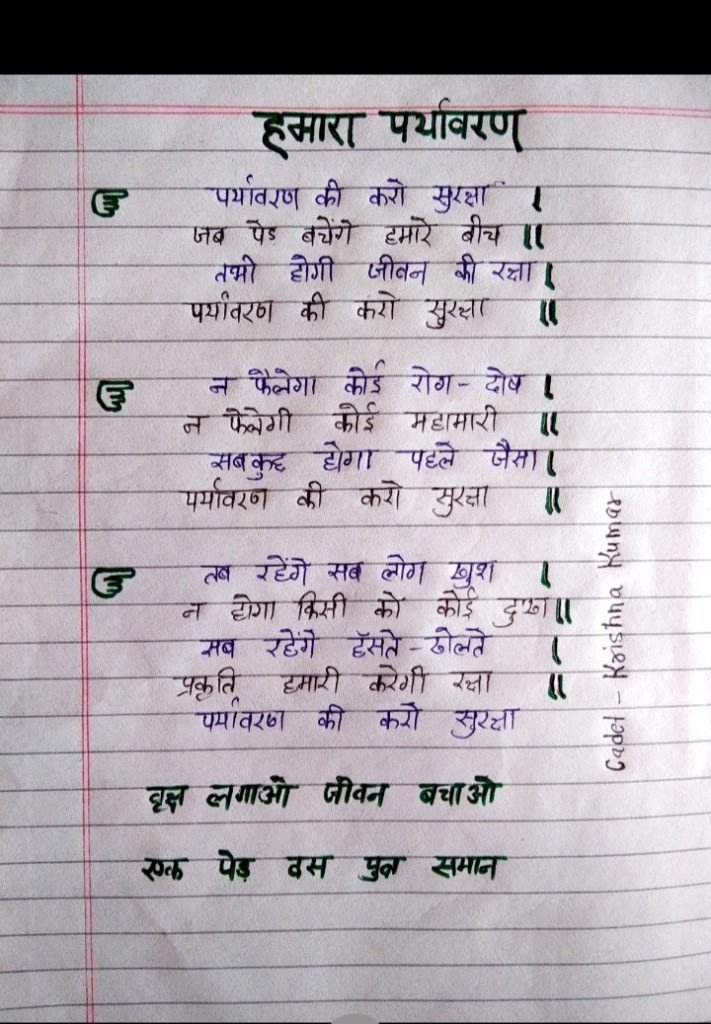 हमारा पर्यावरण
पर्यावरण की करो सुरक्षा ।
जब पेड बचेंगे हमारे बीच ॥
तभी होगी जीवन की रक्षा ।
पर्यावरण की करो सुरक्षा ॥
न फैलेगा कोई रोग - दोष ।
न फैलेगी कोई महामारी ॥
सबकुछ होगा पहले जैसा ।
पर्यावरण की करो सुरक्षा ॥
तब रहेंगे सब लोग खुश ।
न होगा किसी को कोई दुःख ॥
सब रहेंगे हँसते - खेलते ।
प्रकृति हमारी करेगी रक्षा ॥
पर्यावरण की करो सुरक्षा
वृक्ष लगाओ जीवन बचाओ
एक पेड़ दस पुत्र समान
Cadet - Krishna Kumar